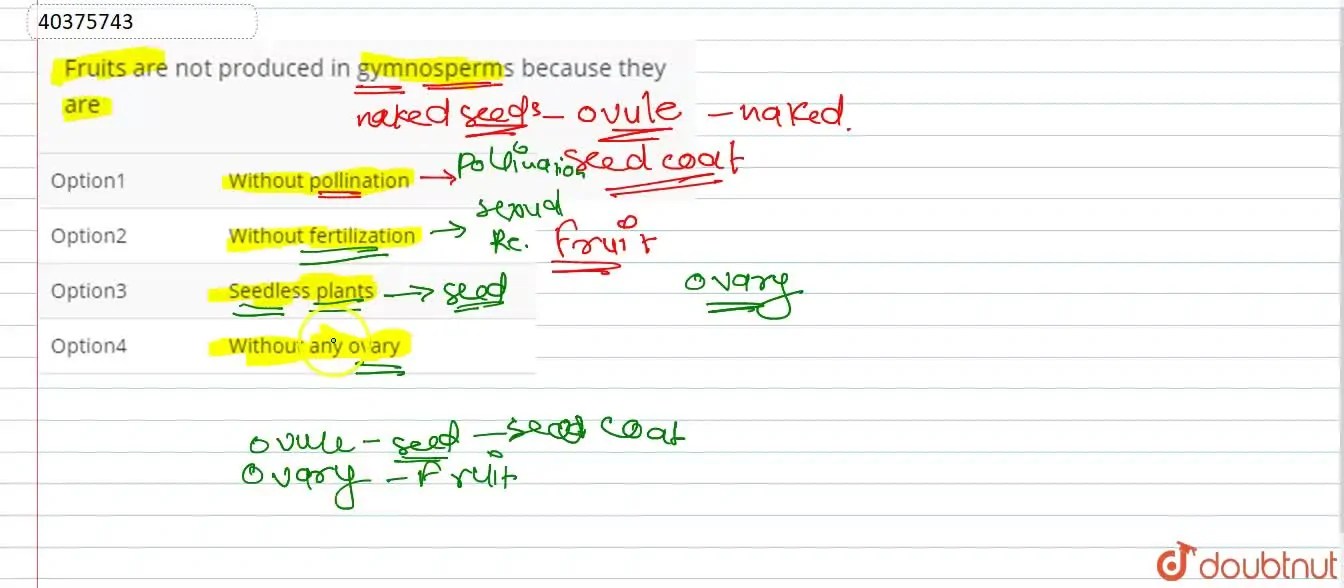 40375743
Fruits are not produced in gymnosperms because they
are
naked seeds - ovule - naked.
Option1 Without pollination → Pollination seed coat
Option2 Without fertilization → sexual Re. Fruit
Option3 Seedless plants → seed ovary
Option4 Without any ovary
ovule - seed - seed coat
Ovary - Fruit
doubtnut